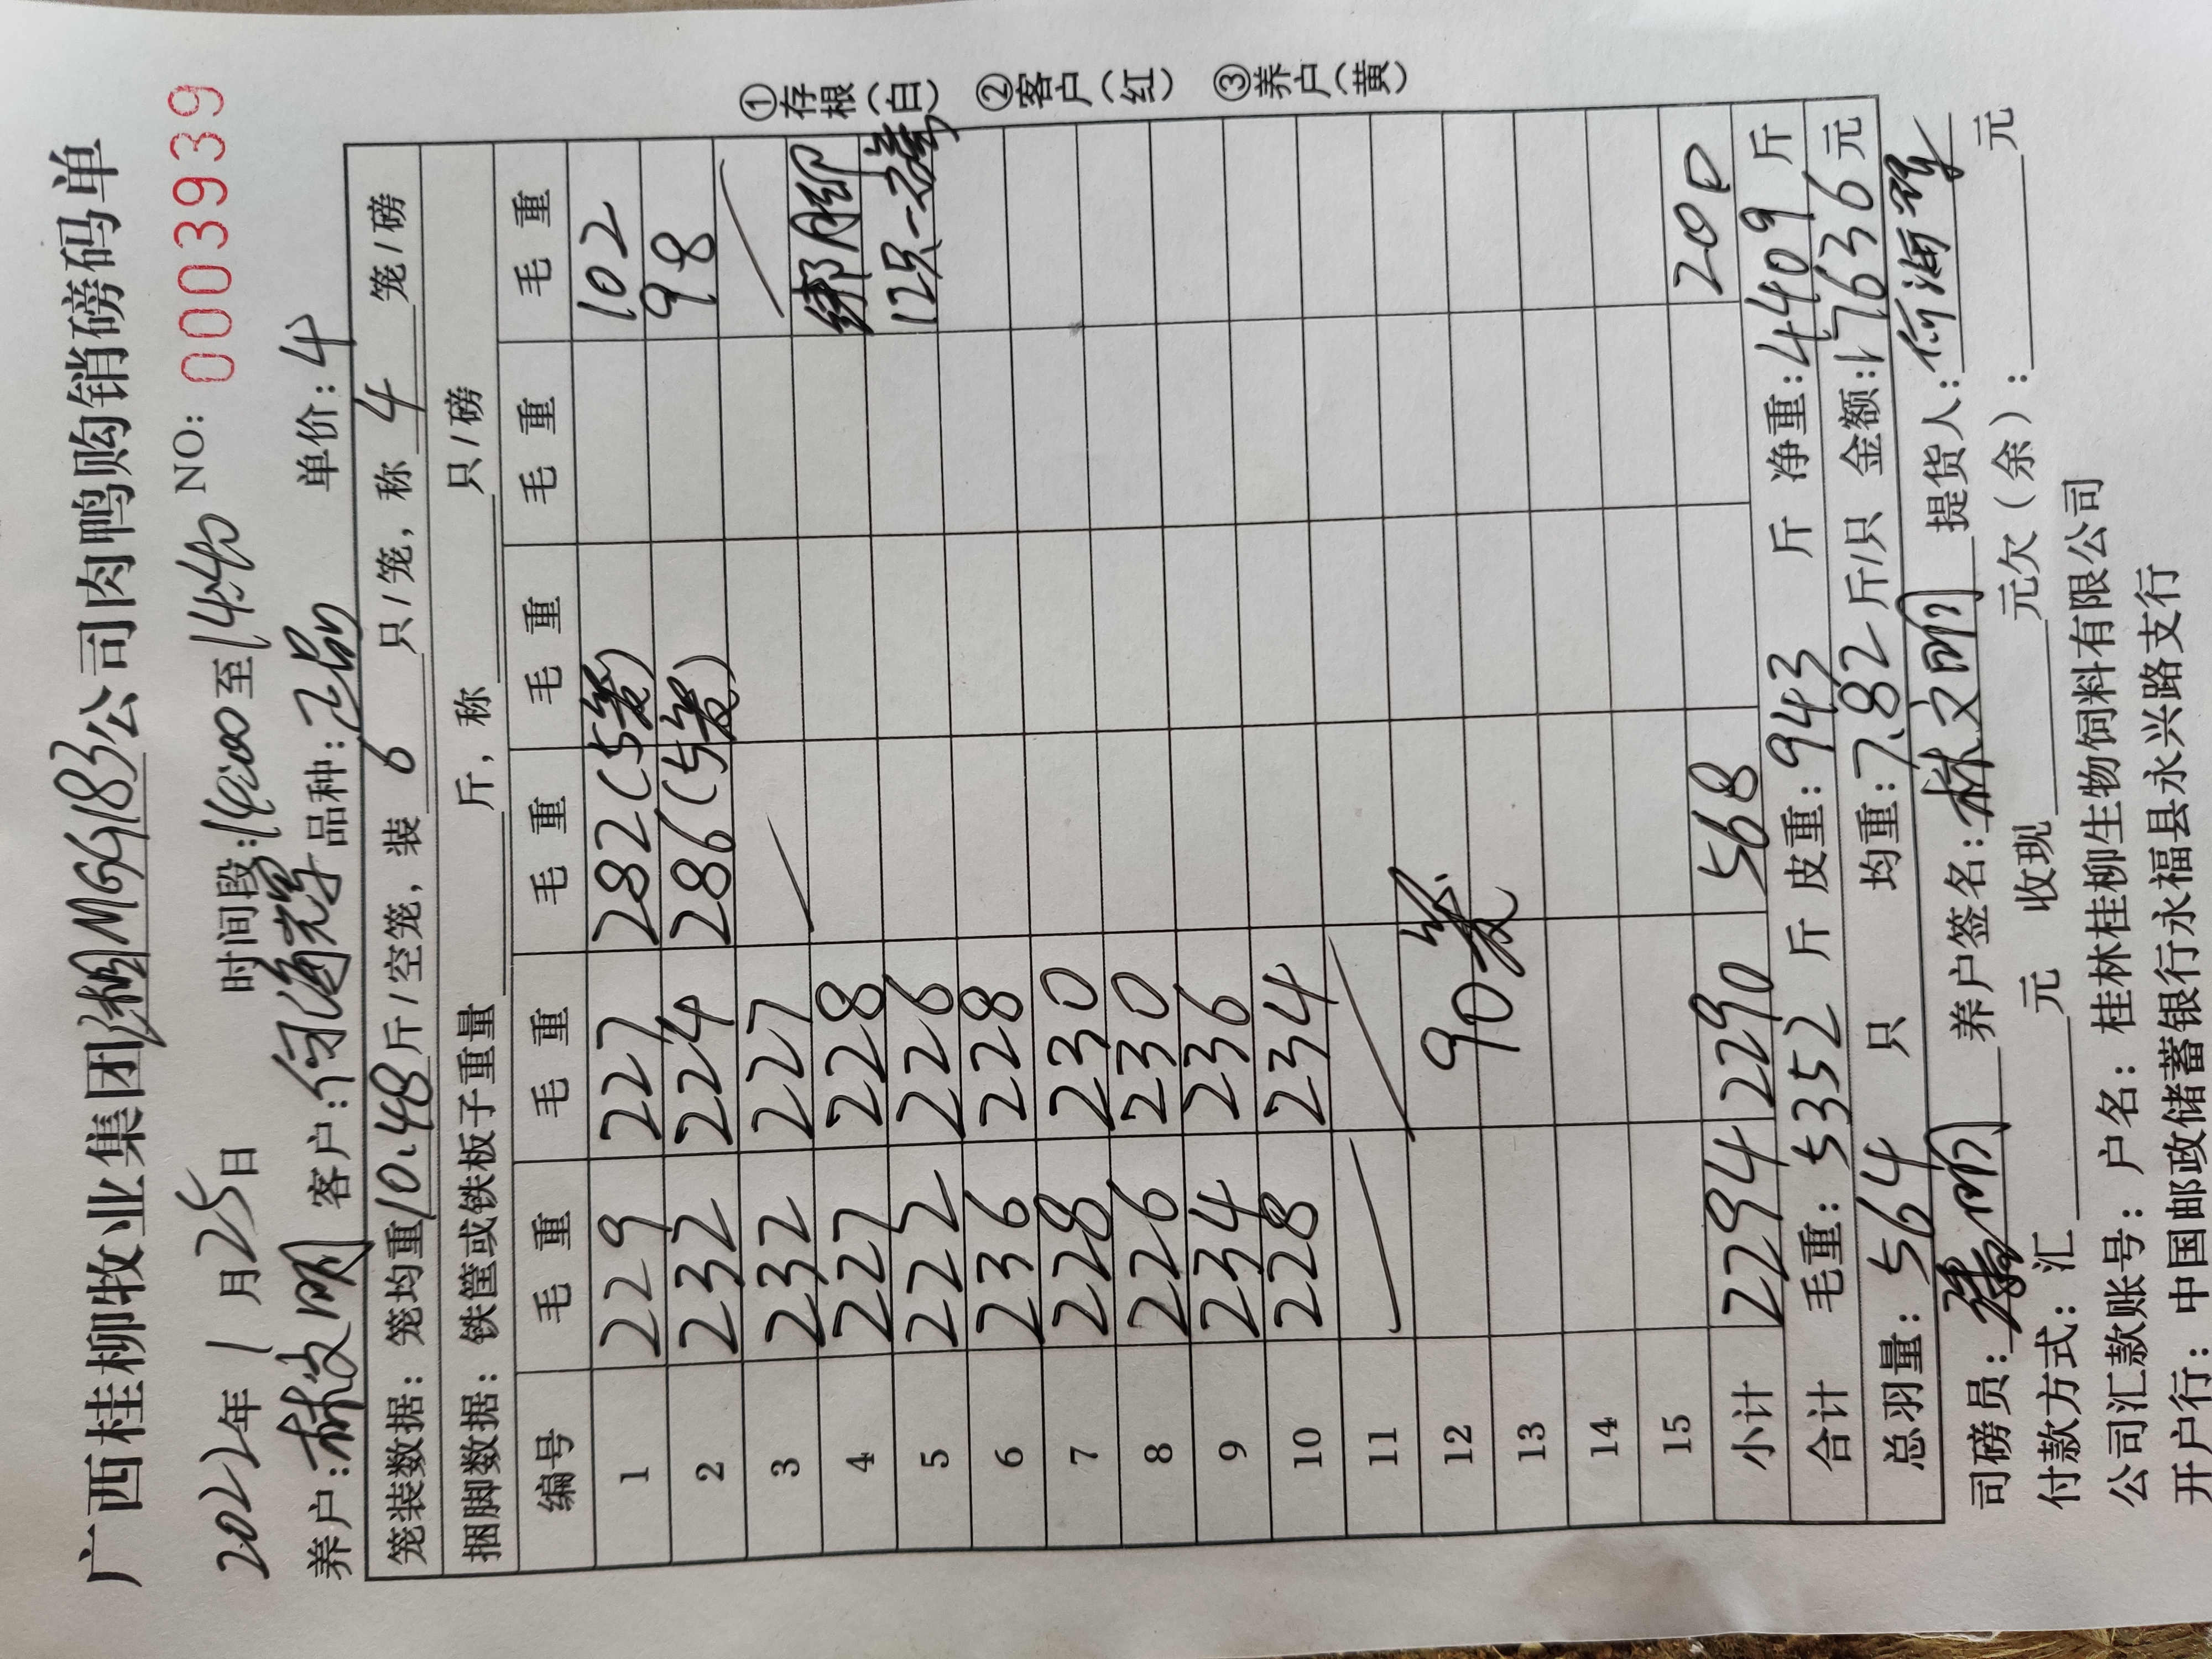 广西桂柳牧业集团湘MG9183公司肉鸭购销磅码单
2022年 1 月25日 时间段:14:00至14:40 NO: 0003939
养户:林文明 客户: 品种: 单价:4
笼装数据: 笼均重10.48斤/空笼, 装 6 只/笼, 称 4 笼/磅
捆脚数据: 铁筐或铁板子重量 斤, 称 只/磅
编号 毛 重 毛 重 毛 重 毛 重 毛 重 毛 重
1 229 227 282(5笼) 102
2 232 224 286(5笼) 98
3 232 227
4 227 228 绑脚
5 222 226 12只一磅
6 236 228
7 228 230
8 226 230
9 234 236
10 228 234
11
12 90笼
13
14
15 200
小计 2294 2290 568
合计 毛重: 5352 斤 皮重: 943 斤 净重: 4409 斤
总羽量: 564 只 均重: 7.82 斤/只 金额: 17636 元
司磅员: 养户签名: 林文明 提货人:
付款方式: 汇 元 收现 元欠(余): 元
公司汇款账号: 户名: 桂林桂柳生物饲料有限公司
开户行: 中国邮政储蓄银行永福县永兴路支行
①存根(白) ②客户(红) ③养户(黄)